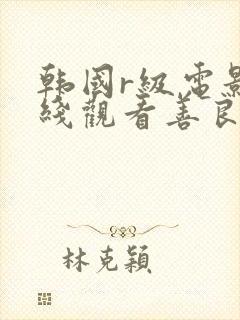 韩国r级电影
线观看善良
林克颖